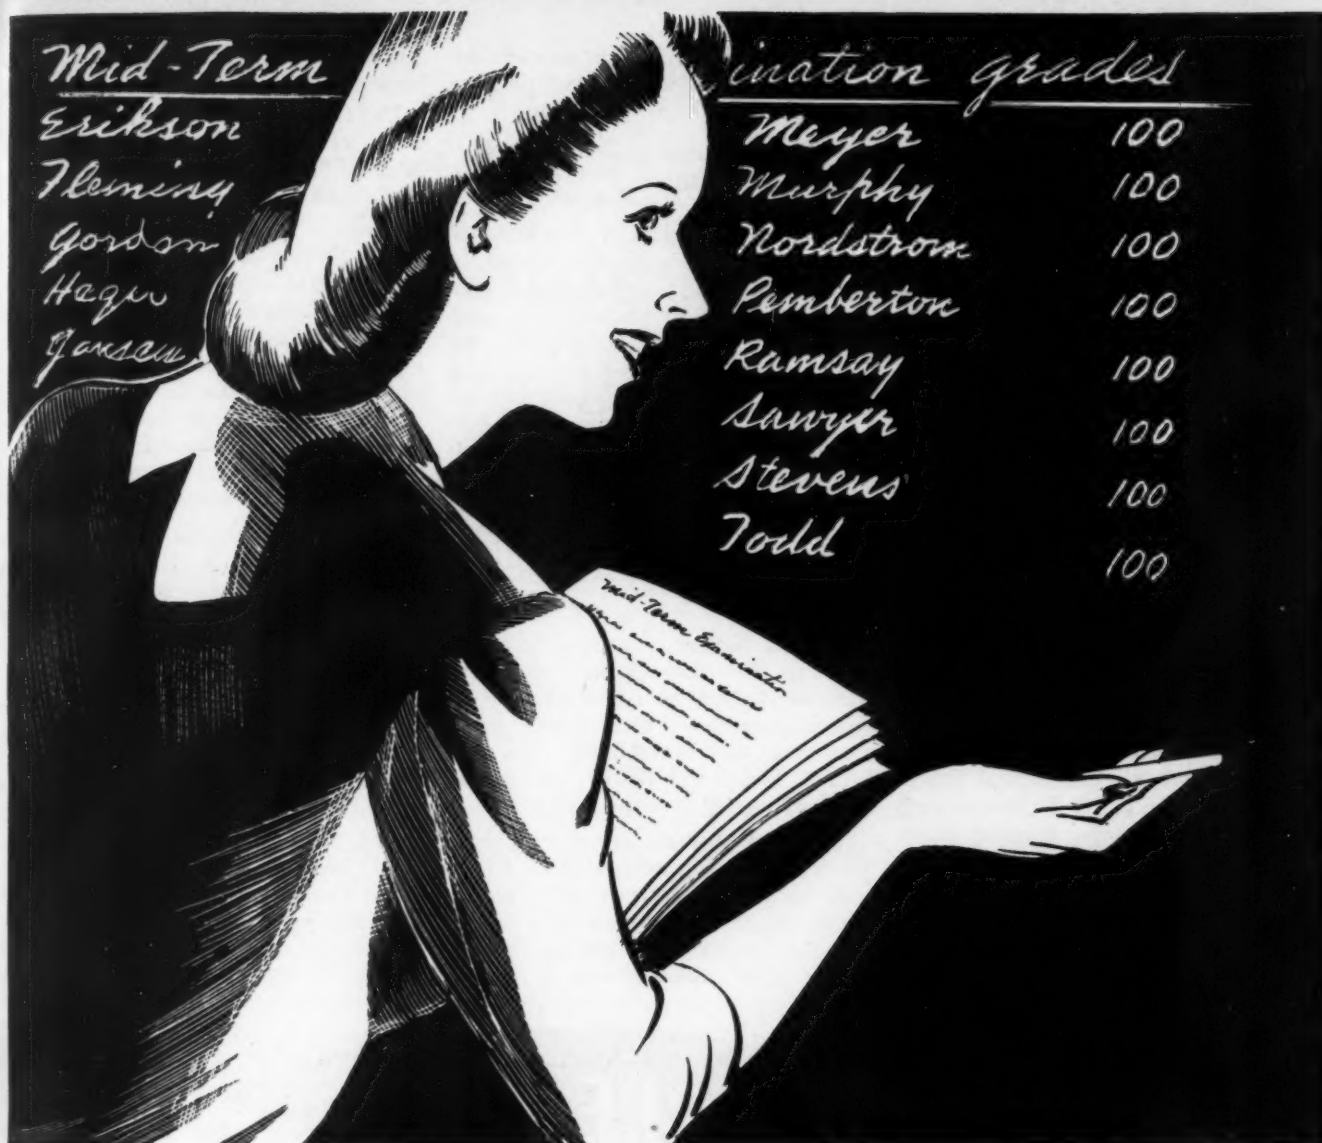 Mid-Term ination grades
Erikson
Fleming
Gordon
Hager
Jansen
Meyer 100
Murphy 100
Nordstrom 100
Pemberton 100
Ramsay 100
Sawyer 100
Stevens 100
Todd 100
Mid-Term Examination